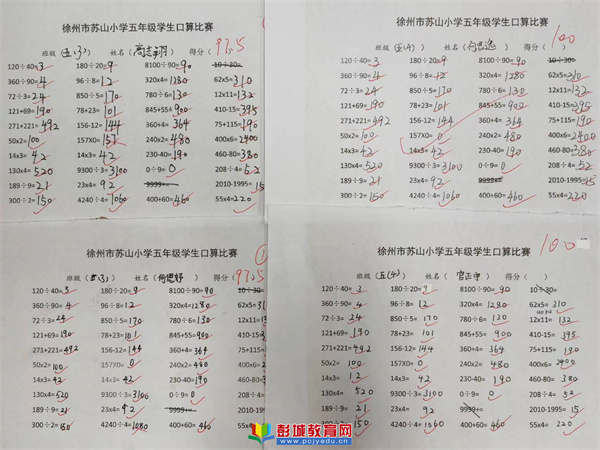 徐州市苏山小学五年级学生口算比赛
班级（五(3)） 姓名（高志翔） 得分（ 97.5
120÷40=3 180÷20=9 8100÷90=90 10÷30=
360÷90=4 96÷8=12 320x4=1280 62x5=310
72÷3=24 850÷5=170 780÷6=130 12x11=132
121+69=190 78+23=101 845+55=900 410-15=395
271+221=492 156-12=144 360+4=364 75+115=190
50x2=100 157X0=157 240x2=480 400x6=2400
14x3=42 14x3=42 230-40=190 460-80=380
130x4=520 9300÷3=3100 0÷9=0 208÷4=52
189÷9=21 23x4=92 9999÷= 2010-1995=15
300÷2=150 4240÷4=1060 400+60=460 55x4=220
徐州市苏山小学五年级学生口算比赛
班级（五(4)） 姓名（ 得分（ 100
120÷40=3 180÷20=9 8100÷90=90 10÷30=
360÷90=4 96÷8=12 320x4=1280 62x5=310
72÷3=24 850÷5=170 780÷6=130 12x11=132
121+69=190 78+23=101 845+55=900 410-15=395
271+221=492 156-12=144 360+4=364 75+115=190
50x2=100 157X0=0 240x2=480 400x6=2400
14x3=42 14x3=42 230-40=190 460-80=380
130x4=520 9300÷3=3100 0÷9=0 208÷4=52
189÷9=21 23x4=92 9999÷= 2010-1995=15
300÷2=150 4240÷4=1060 400+60=460 55x4=220
徐州市苏山小学五年级学生口算比赛 ①
班级（五(3)） 姓名（ 得分（ 97.5
120÷40=3 180÷20=9 8100÷90=90 10÷30=
360÷90=4 96÷8=12 320x4=1280 62x5=31
72÷3=24 850÷5=170 780÷6=130 12x11=
121+69=190 78+23=101 845+55=900 410-15
271+221=492 156-12=144 360+4=364 75+115
50x2=100 157X0=0 240x2=480 400x6
14x3=42 14x3=42 230-40=190 460-8
130x4=520 9300÷3=3100 0÷9=0 208÷4
189÷9=21 23x4=92 9999÷= 2010-
300÷2=150 4240÷4=1080 400+60=460 55x4
徐州市苏山小学五年级学生口算比赛
班级（五(4)） 姓名（ 得分（ ） 100
120÷40=3 180÷20=9 8100÷90=90 10÷30=
360÷90=4 96÷8=12 320x4=1280 62x5=310
72÷3=24 850÷5=170 780÷6=130 12x11=132
121+69=190 78+23=101 845+55=900 410-15=395
271+221=492 156-12=144 360+4=364 75+115=190
50x2=100 157X0=0 240x2=480 400x6=2400
14x3=42 230-40=190 460-80=380
130x4=520 9300÷3=3100 0÷9=0 208÷4=52
189÷9=21 23x4=92 9999÷= 2010-1995=15
300÷2=150 4240÷4=1060 400+60=460 55x4=220
彭城教育网
www.pcjyedu.cn